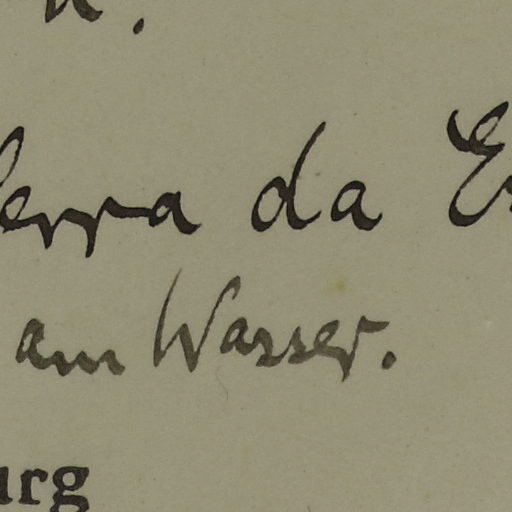 erra da
am Wasser.
urg